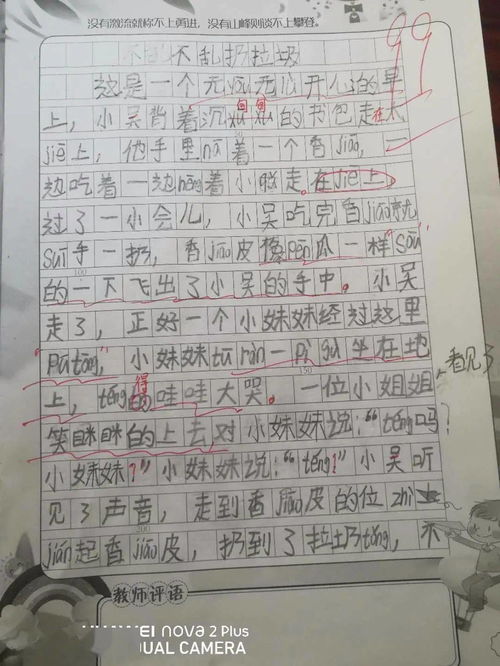 没有激流就称不上勇进，没有山峰则谈不上攀登。
不乱扔拉圾
99
这是一个无忧无虑开心的早
上，小吴背着沉甸甸的书包走在大
jiē上，他手里ná着一个香jiāo，一
边吃着一边hēng着小歌走在jiē上
过了一小会儿，小吴吃完香jiāo就
suí手一扔，香jiāo皮像pēn瓜一样sōu
的一下飞出了小吴的手中。小吴
走了，正好一个小妹妹经过这里
"Pū tōng"，小妹妹tū rán一Pì gǔ坐在地
上，téng得哇哇大哭。一位小姐姐看见了
笑眯眯的上去对小妹妹说："téng吗？
小妹妹？"小妹妹说："téng！"小吴听
见了声音，走到香jiāo皮的位zhì
jiǎn起香jiāo皮，扔到了拉圾tǒng，不
100
150
200
教师评语
EI nova 2 Plus
UAL CAMERA